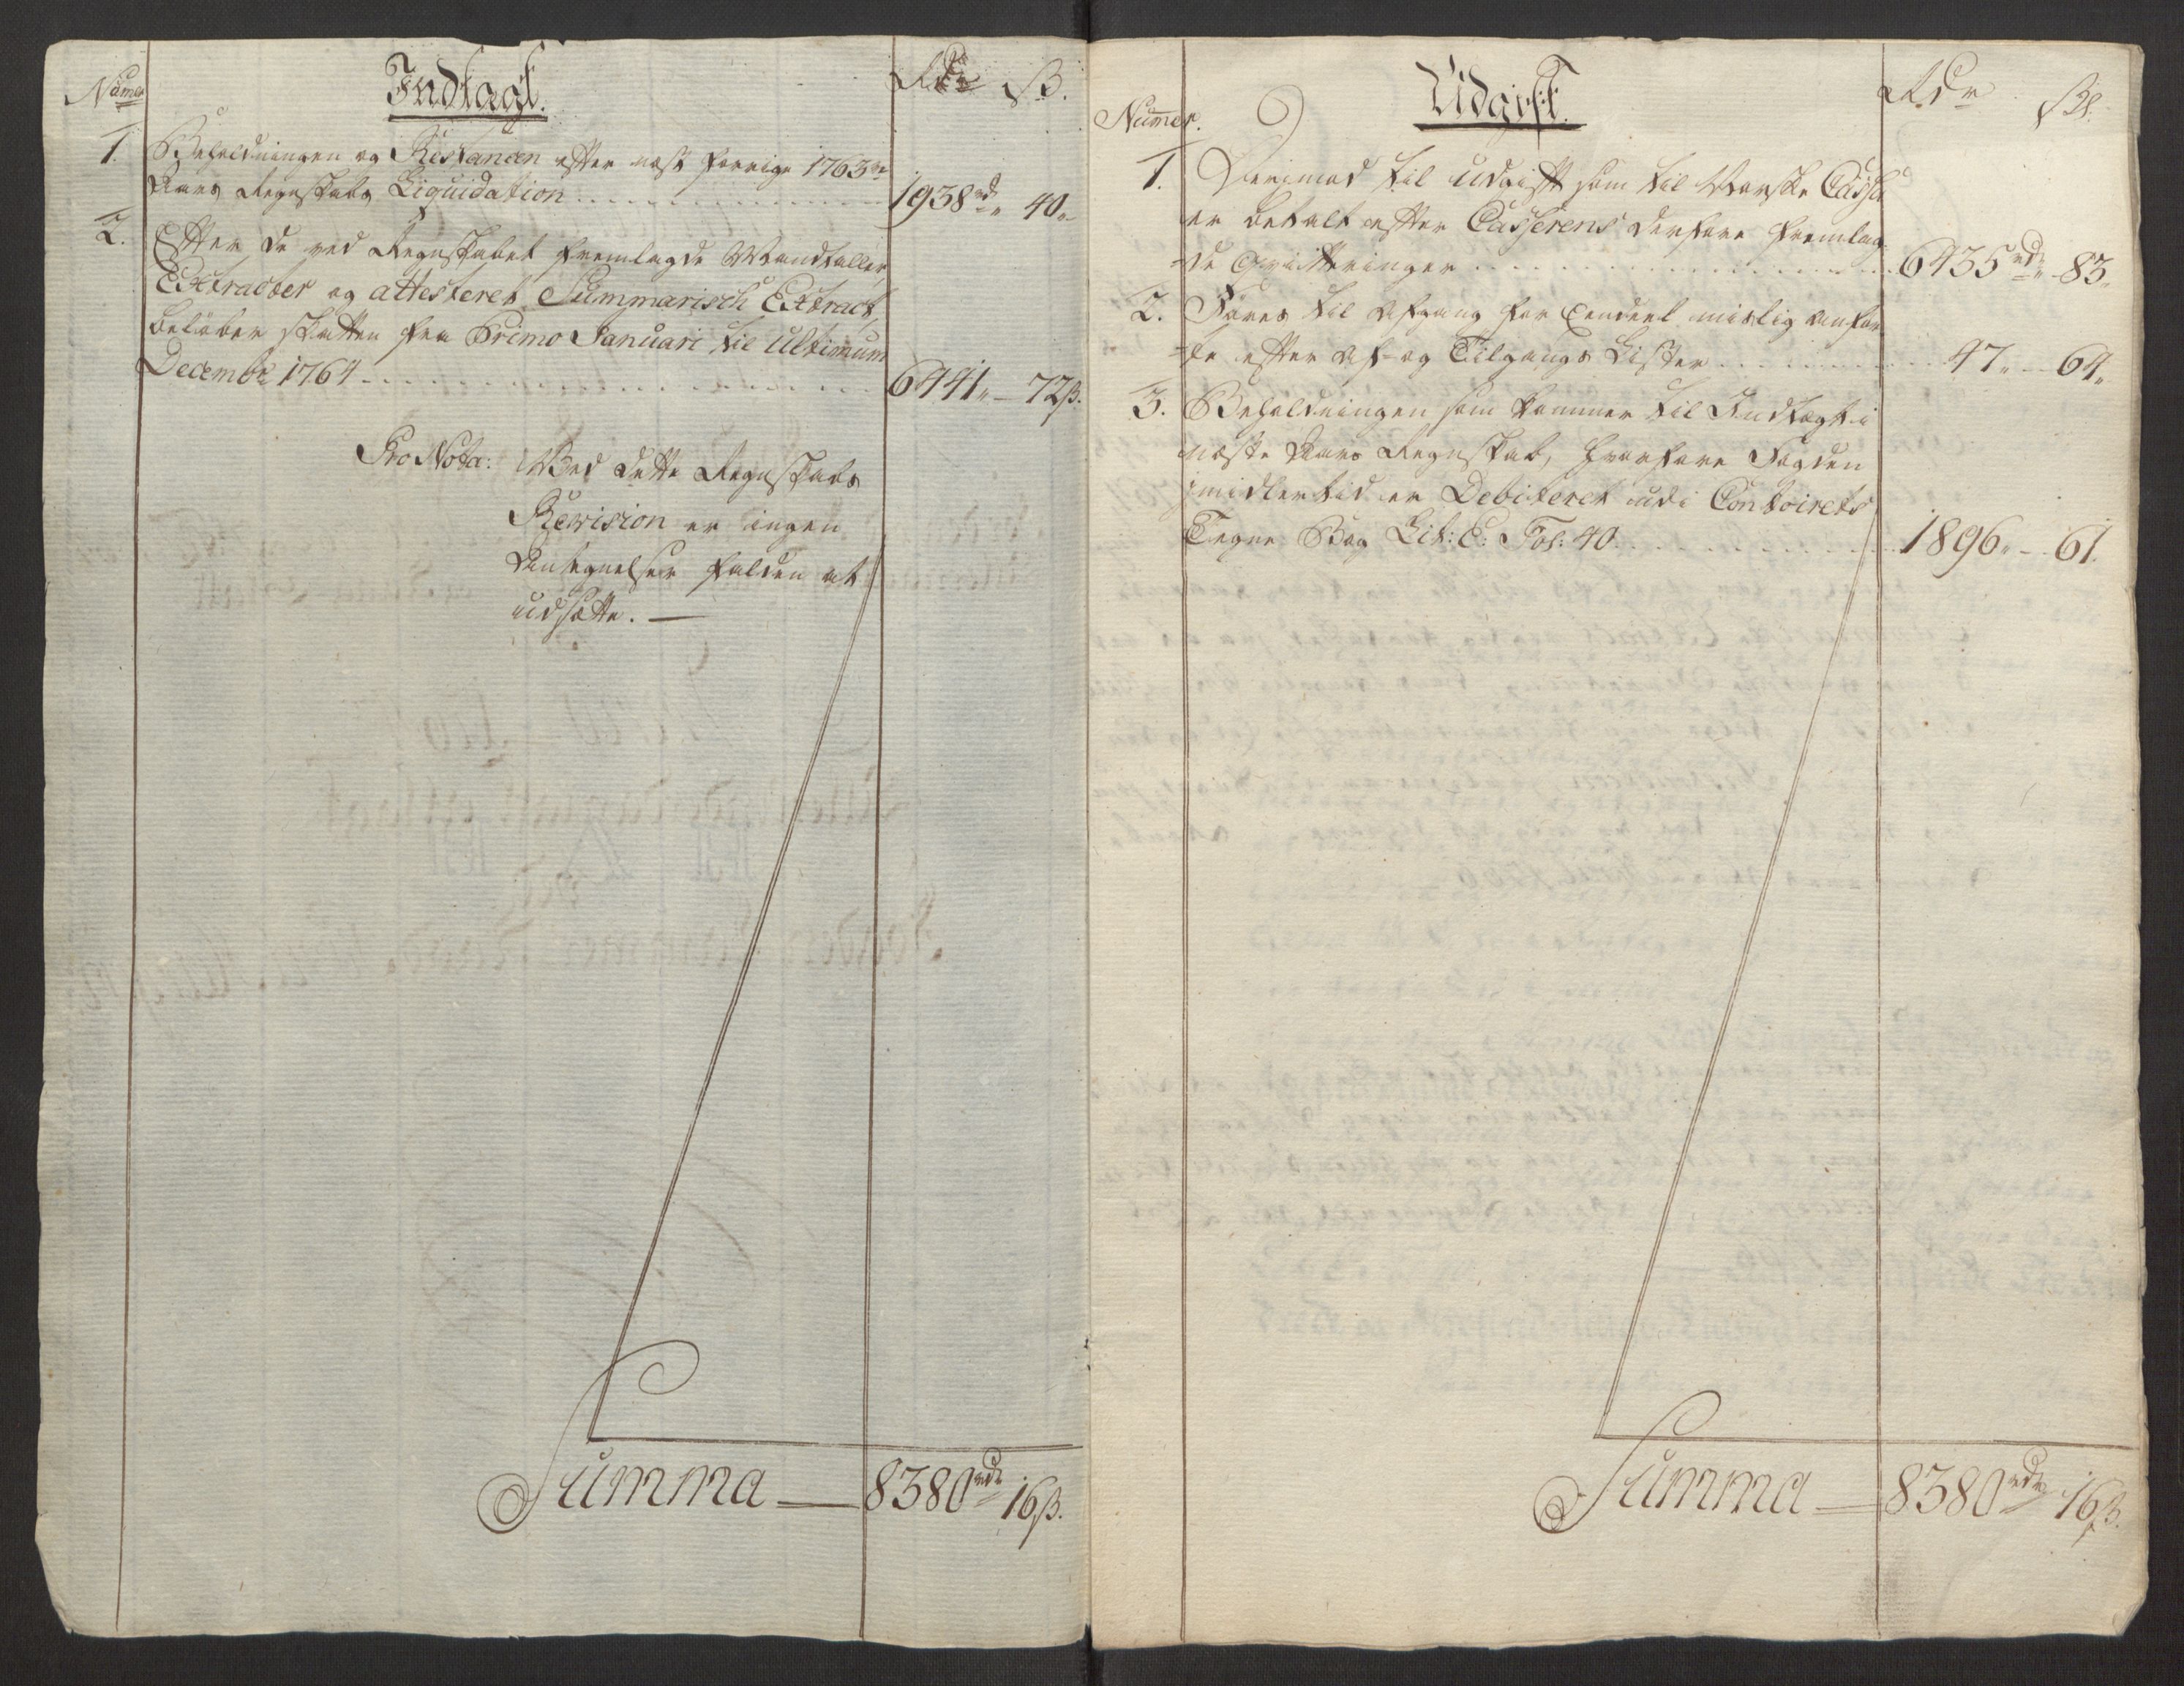 Numer
Indtægt.
Rdr ß.
1. Beholdningen og Restancen efter nest forrige 1763de
Aars Regnskabs Liquidation 1938rd 40
2. Efter de ved Regnskabet fremlagde Mandtaller,
Extracter og attesteret Summarisch Extract,
beløber skatten fra Primo Januari til Ultimum
Decembr 1764 6441 " 72ß.
Pro Nota: Ved dette Regnskabs
Revision er ingen
Antegnelser falden at
udsætte.
Summa 8380rdr 16ß.
Numer.
Udgift.
Rdr ßl.
1. Derimod til udgift som til Norske Cassa
er betalt efter Casserens derfore fremlag-
=de Qvitteringer 6435rdr 83
2. Føres til Afgang for Eendeel mislig anfør
=te efter Af- og Tilgangs Lister 47 " 64
3. Beholdningen som kommer til Indtægt i
næste Aars Regnskab, hvorfore Fogden
imidlertid er Debiteret udi Contoirets
Tegne Bog Lit: C: Fol: 40 1896 " 61.
Summa 8380rdr 16ß.